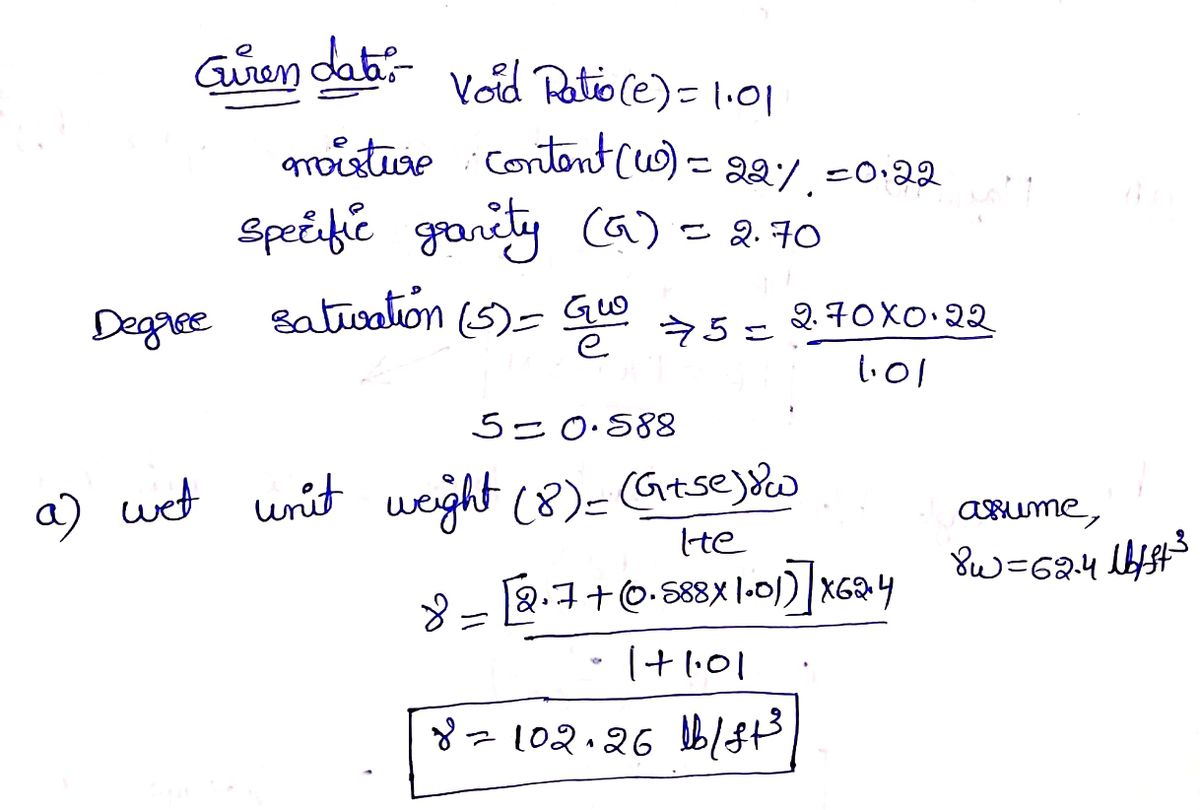 Given data:- Void Ratio (e) = 1.01
moisture content (w) = 22%. = 0.22
Specific gravity (G) = 2.70
Degree saturation (S) = Gw/e ⇒ S = 2.70X0.22/1.01
S = 0.588
a) wet unit weight (γ) = (G+Se)γw/1+e
assume,
γw = 62.4 lb/ft³
γ = [2.7 + (0.588X1.01)]X62.4/1+1.01
γ = 102.26 lb/ft³